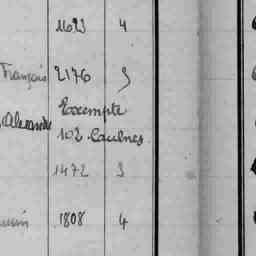 1693 4
François 2176 3
Exempte
Alexandre 102 Caulnes
1472 3
1808 4